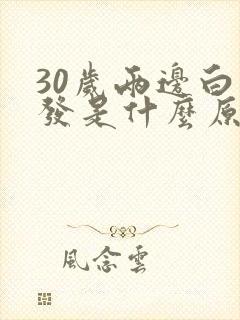 30歲兩邊白
發是什麼原
風念雲